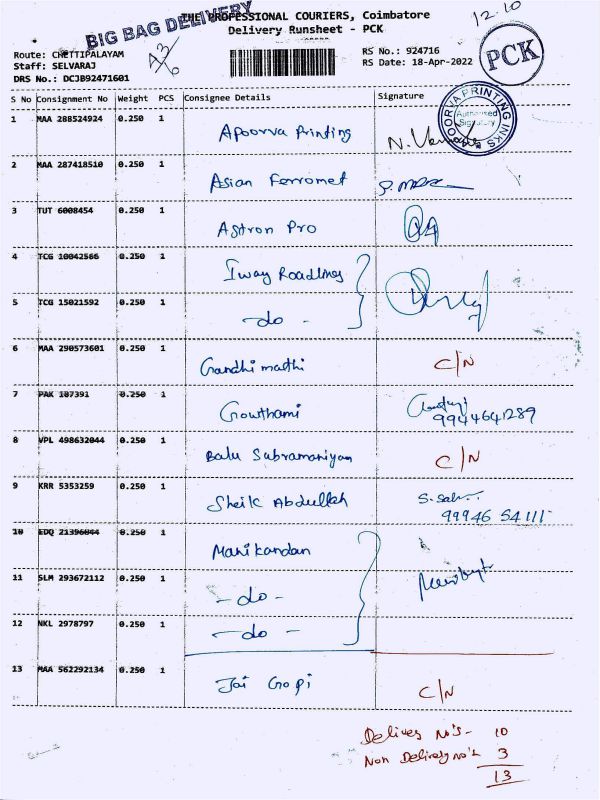 BIG BAG DELIVERY
THE PROFESSIONAL COURIERS, Coimbatore
Delivery Runsheet - PCK
12.10
Route: CHETTIPALAYAM
Staff: SELVARAJ
DRS No.: DCJB92471601
RS No.: 924716
RS Date: 18-Apr-2022
PCK
S No Consignment No Weight PCS Consignee Details Signature
POORVA PRINTING INKS
Authorised Signatory
1 MAA 288524924 0.250 1 Apoorva Printing
2 MAA 287418510 0.250 1 Asian Ferromet
3 TUT 6008454 0.250 1 Astron Pro
4 TCG 10042566 0.250 1 Iway Roadlines
5 TCG 15021592 0.250 1 -do-
6 MAA 290573601 0.250 1 Gandhi mathi C/N
7 PAK 107391 0.250 1 Gowthami
9944641289
8 VPL 498632044 0.250 1 Balu Subramaniyan C/N
9 KRR 5353259 0.250 1 Sheik Abdullah
99946 54111
10 EDQ 21396044 0.250 1 Manikandan
11 SLM 293672112 0.250 1 -do-
12 NKL 2978797 0.250 1 -do-
13 MAA 562292134 0.250 1 Jai Gopi C/N
Delivery No's- 10
Non Delivery no's 3
13